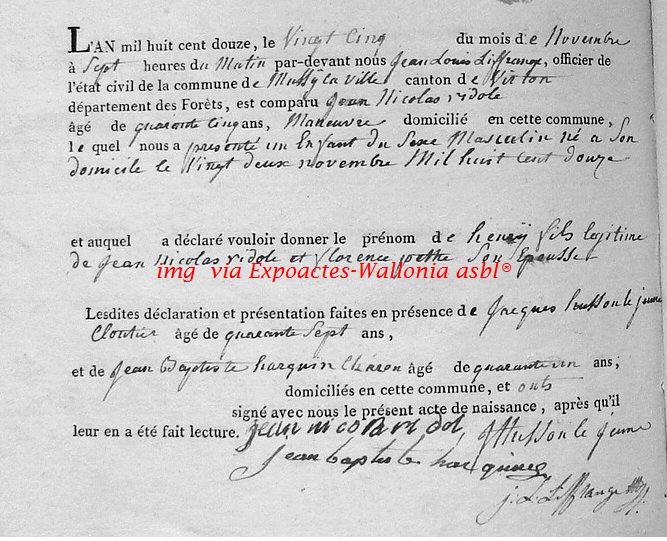 L'AN mil huit cent douze, le Vingt Cinq du mois de Novembre
à Sept heures du Matin par-devant nous Jean Louis Liffrange, officier de
l'état civil de la commune de Mussÿ la ville canton de Virton
département des Forêts, est comparu Jean Nicolas ridole
âgé de quarante Cinq ans, Maneuvre domicilié en cette commune,
lequel nous a présenté un Enfant du Sexe Masculin né a Son
domicile le Vingt deux novembre Mil huit Cent douze
et auquel a déclaré vouloir donner le prénom de henrÿ fils legitime
de Jean Nicolas ridole et florence Son Epousse
img via Expoactes-Wallonia asbl®
Lesdites déclaration et présentation faites en présence de Jacques husson le jeune
Cloutier âgé de quarante Sept ans,
et de Jean Baptiste harquin Charon âgé de quarante un ans;
domiciliés en cette commune, et onts
signé avec nous le présent acte de naissance, après qu'il
leur en a été fait lecture. jean nicola ridol J husson le jeune
jean baptiste
j. L. Liffrange